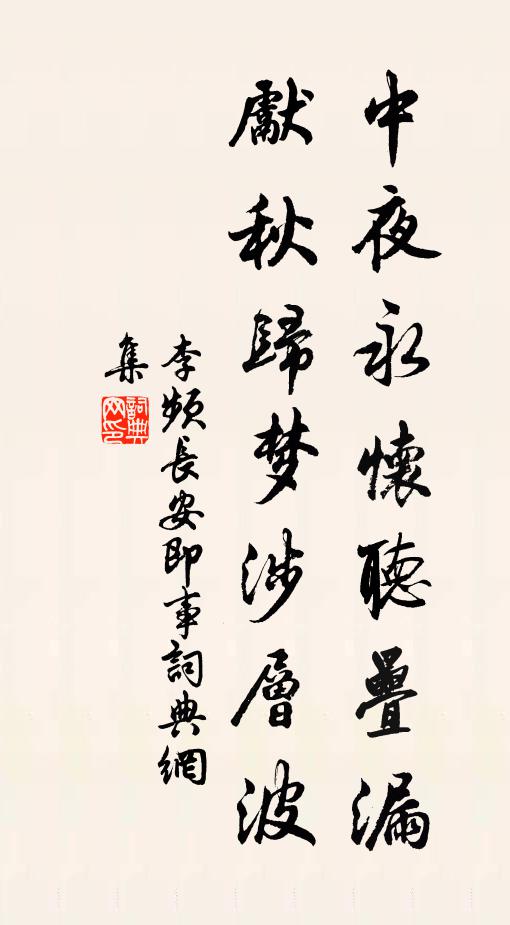 中夜永懷聽疊漏
獻秋歸梦涉層波
李頻長安即事詞典網
集
詞典網印